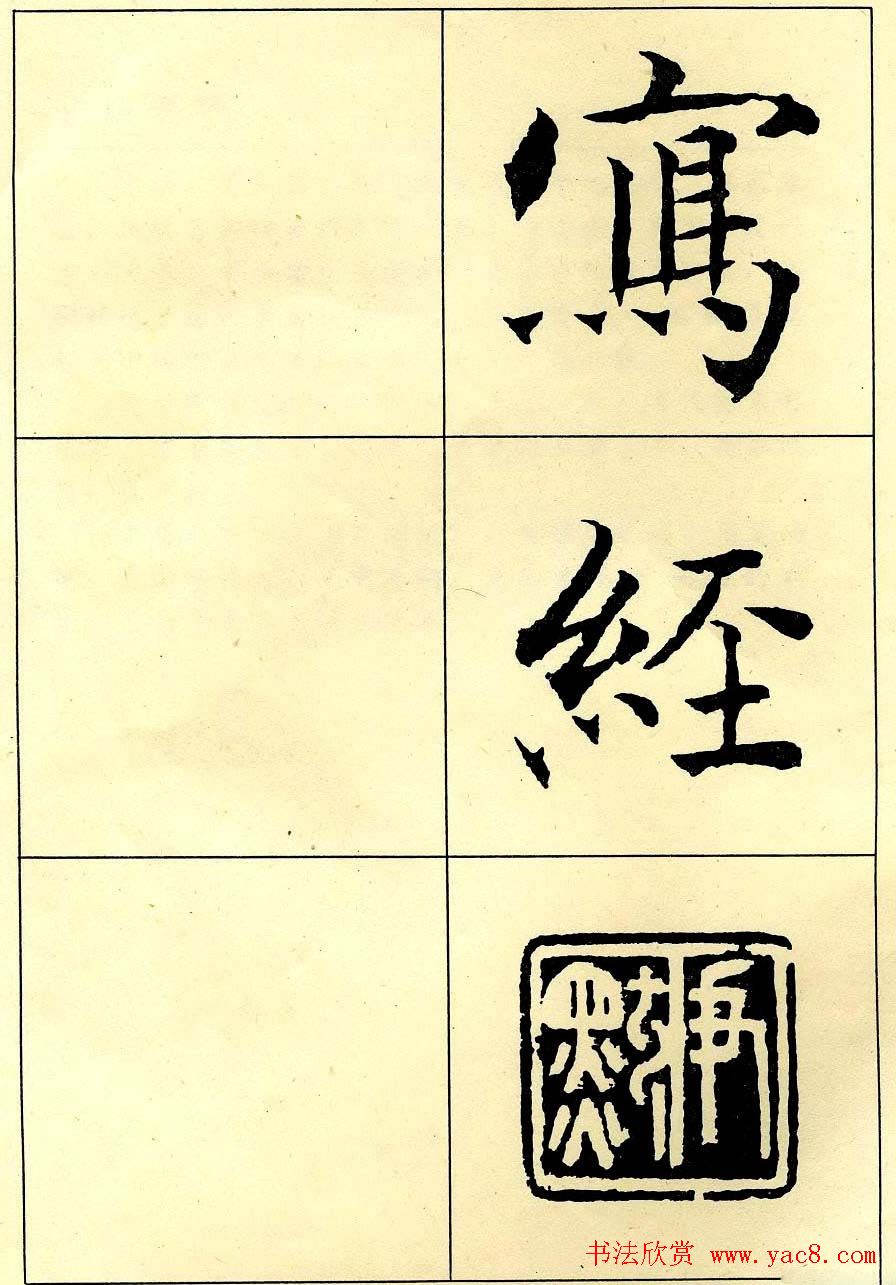 寫
経
书法欣赏 www.yac8.com